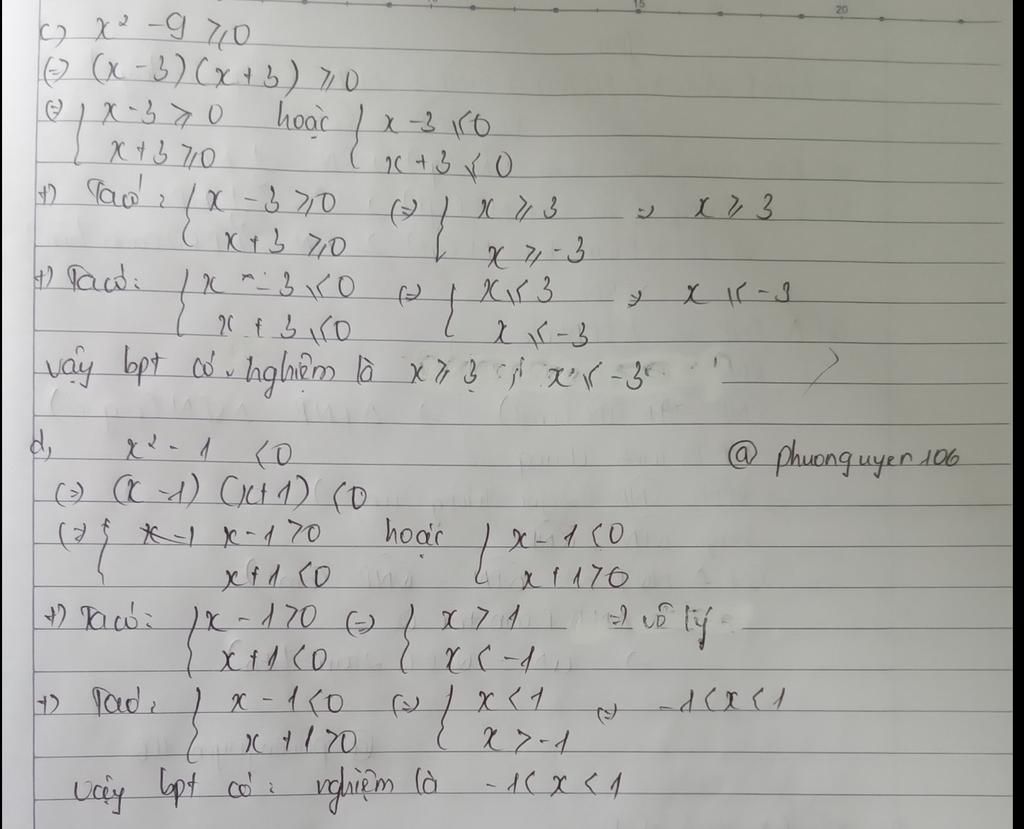 15 20
c) x² - 9 ⩾ 0
(=) (x - 3) (x + 3) ⩾ 0
(=) { x - 3 ⩾ 0 hoặc { x - 3 ⩽ 0
x + 3 ⩾ 0 x + 3 ⩽ 0
+) Ta có : { x - 3 ⩾ 0 (=) { x ⩾ 3 => x ⩾ 3
x + 3 ⩾ 0 x ⩾ -3
+) Ta có: { x - 3 ⩽ 0 (=) { x ⩽ 3 => x ⩽ -3
x + 3 ⩽ 0 x ⩽ -3
vậy bpt có nghiệm là x ⩾ 3 ; x ⩽ -3
d, x² - 1 < 0
@ phuonguyen106
(=) (x - 1) (x + 1) < 0
(=) { x - 1 x - 1 > 0 hoặc { x - 1 < 0
x + 1 < 0 x + 1 > 0
+) Ta có: { x - 1 > 0 (=) { x > 1 => vô lý
x + 1 < 0 x < -1
+) Ta có: { x - 1 < 0 (=) { x < 1 (=) -1 < x < 1
x + 1 > 0 x > -1
vậy bpt có : nghiệm là -1 < x < 1